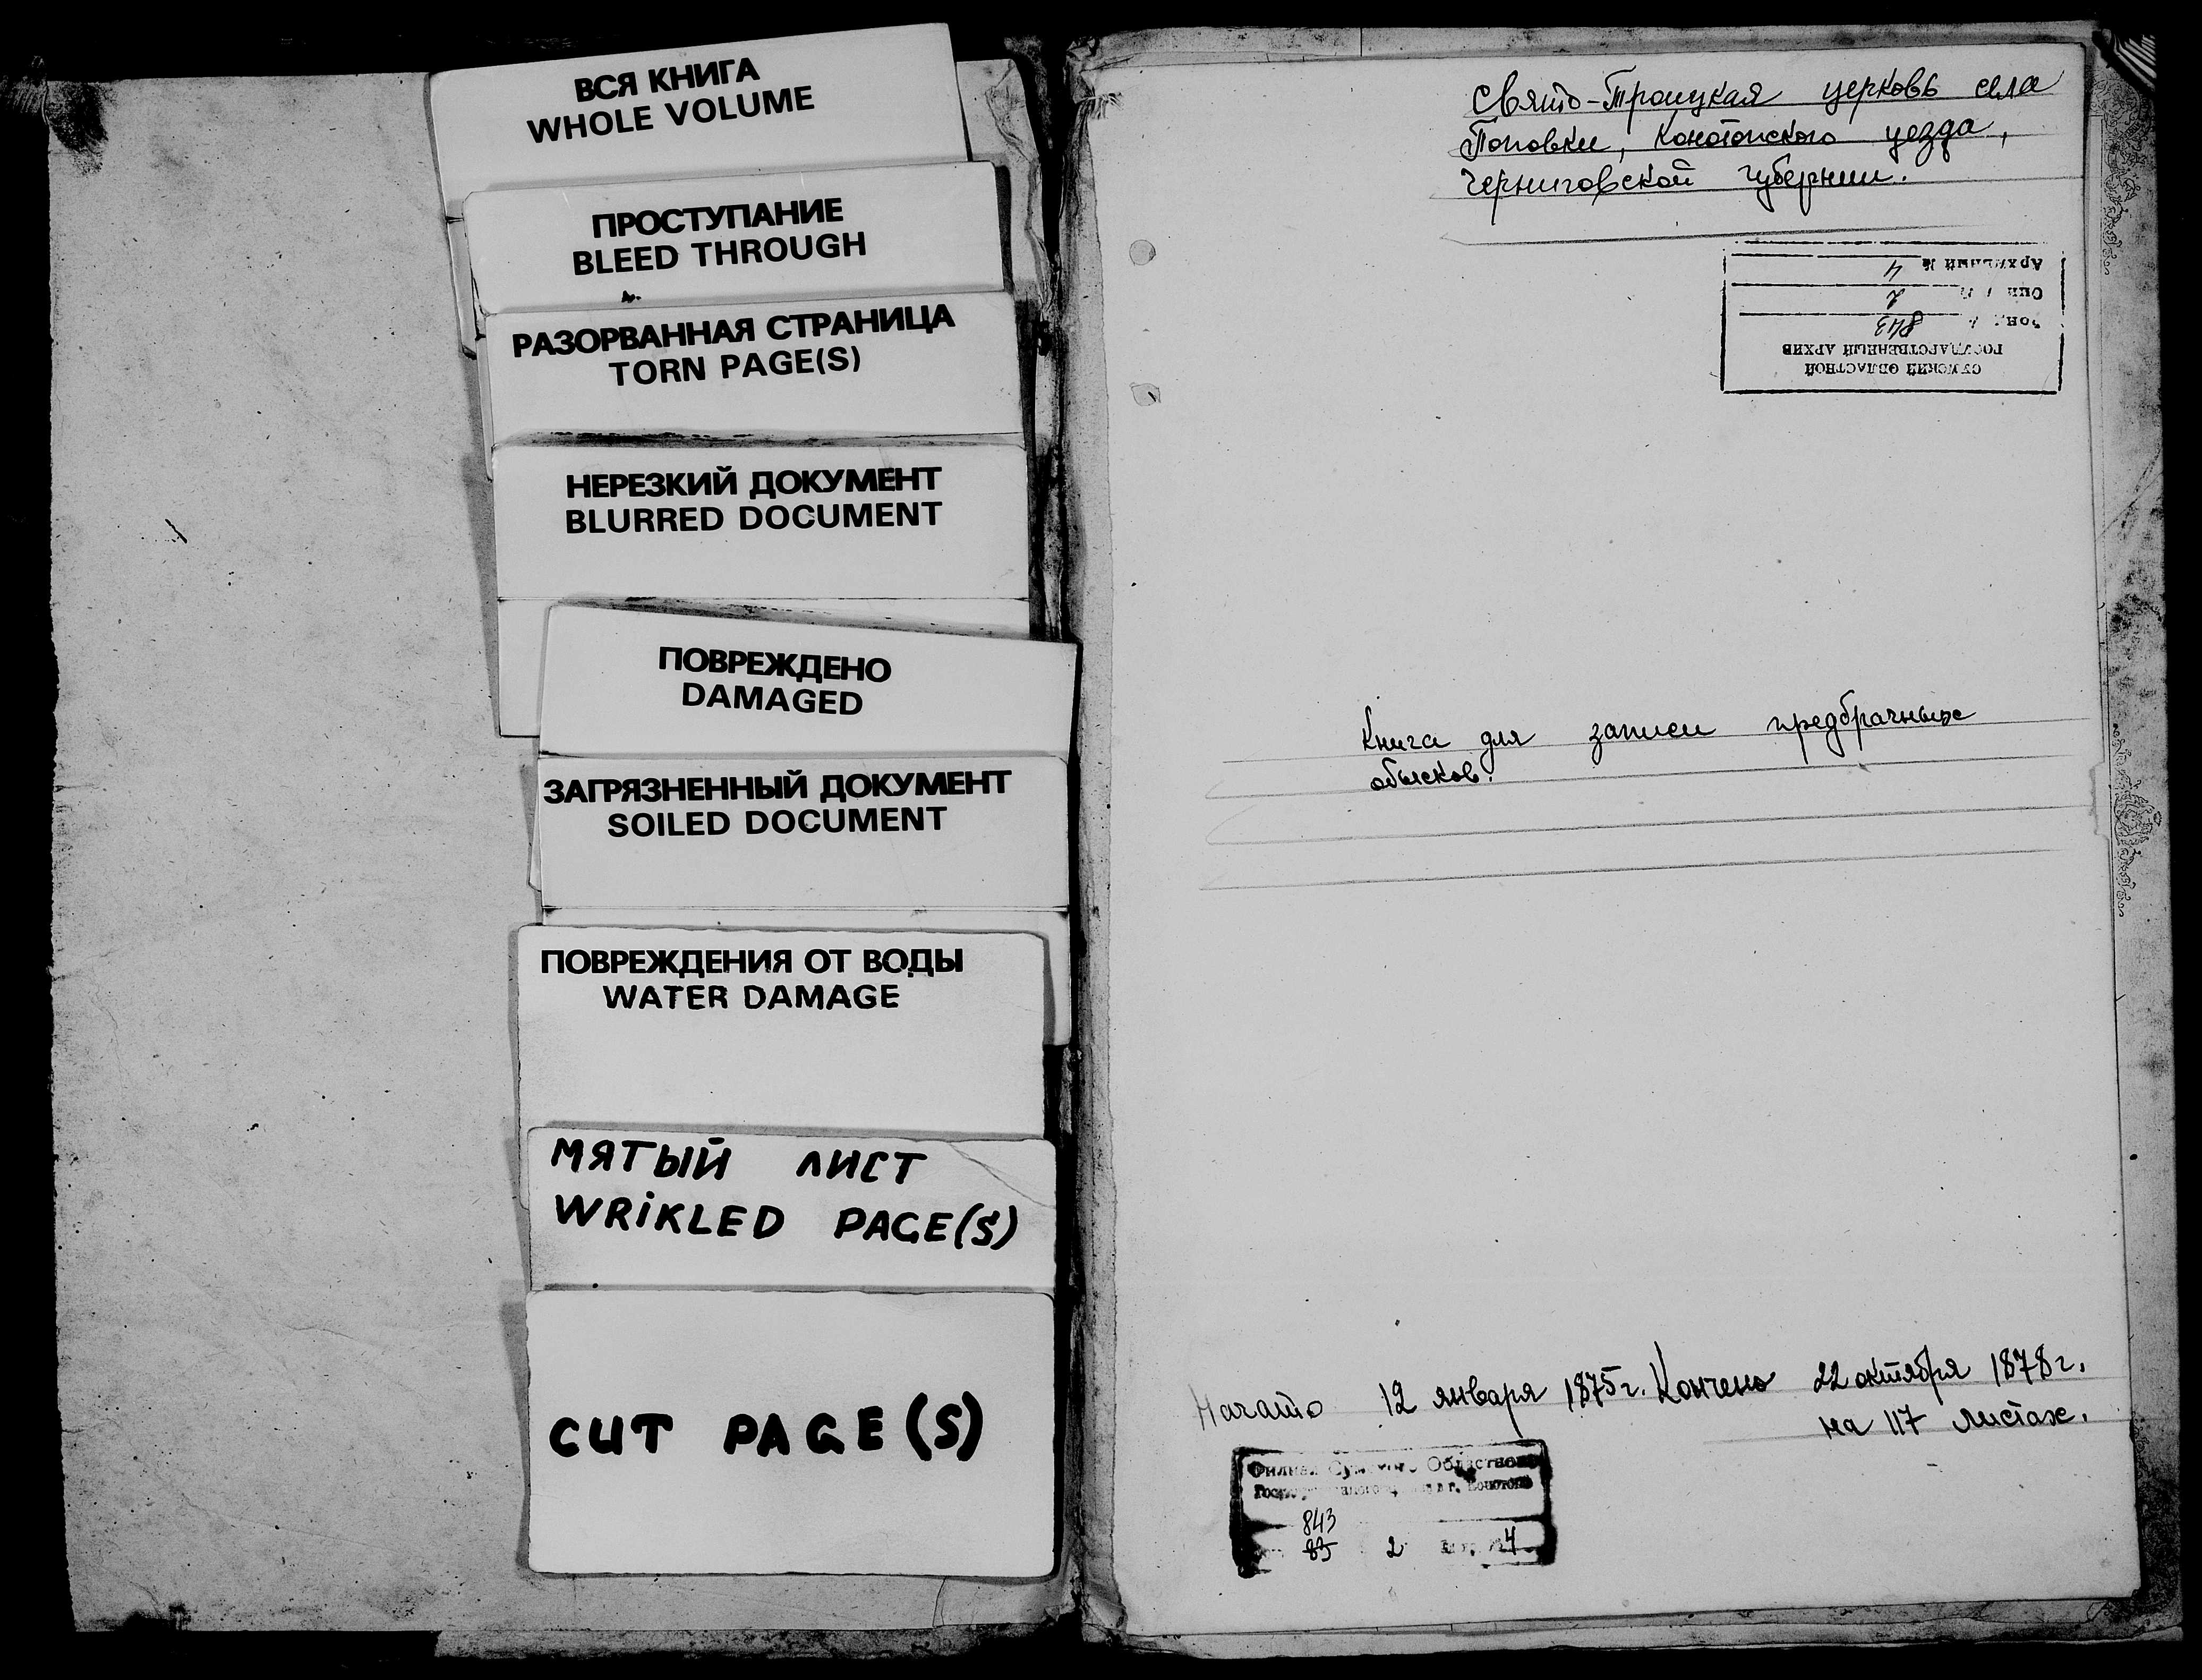 ВСЯ КНИГА
WHOLE VOLUME
ПРОСТУПАНИЕ
BLEED THROUGH
РАЗОРВАННАЯ СТРАНИЦА
TORN PAGE(S)
НЕРЕЗКИЙ ДОКУМЕНТ
BLURRED DOCUMENT
ПОВРЕЖДЕНО
DAMAGED
ЗАГРЯЗНЕННЫЙ ДОКУМЕНТ
SOILED DOCUMENT
ПОВРЕЖДЕНИЯ ОТ ВОДЫ
WATER DAMAGE
МЯТЫЙ ЛИСТ
WRIKLED PAGE(S)
CUT PAGE(S)
Свято-Троицкая церковь села
Поповки, Конотопского уезда,
Черниговской губернии.
СУМСКИЙ ОБЛАСТНОЙ
ГОСУДАРСТВЕННЫЙ АРХИВ
Фонд 843
Опись 2
Архивный № 4
Книга для записи предбрачных
обысков.
Начато 12 января 1875 г. Кончено 22 октября 1878 г.
на 117 листах.
Филиал Сумского Областного
г. Конотопе
843
83 2 4